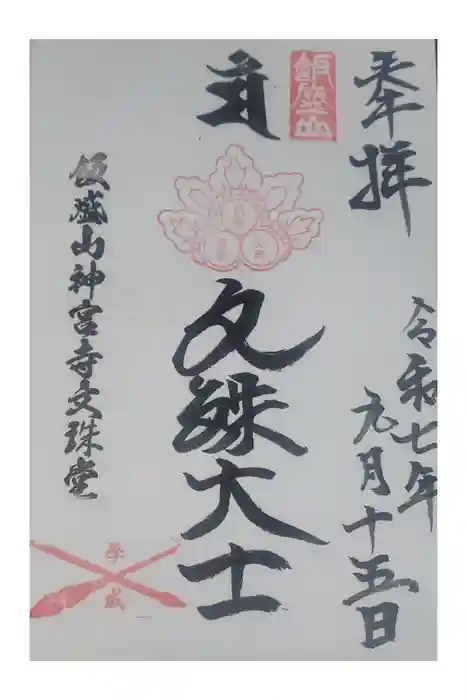 奉拝
令和七年
元月十五日
飯盛山
道
文殊大士
飯盛山神宮寺文珠堂
学
成